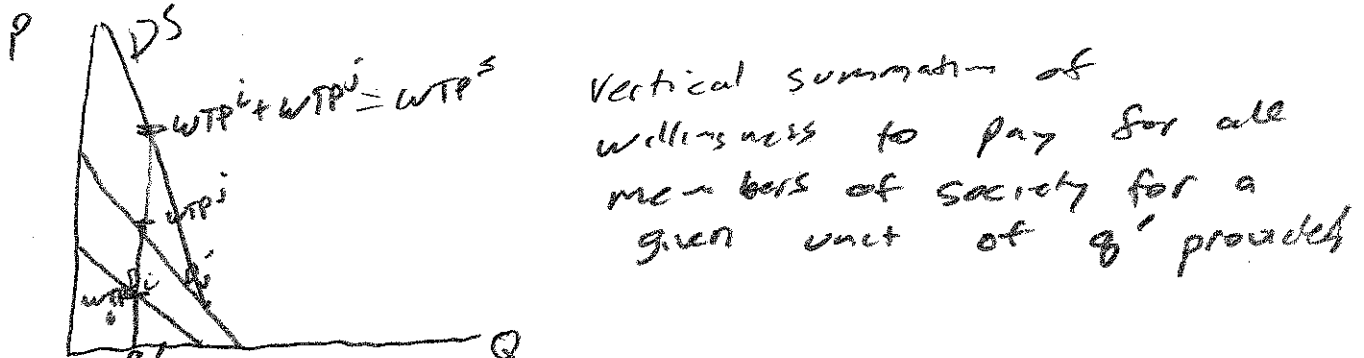 P
D^S
WTP^i + WTP^j = WTP^s
WTP^j
WTP^i
D^i D^j
q'
Q
Vertical summation of
willingness to pay for all
members of society for a
given unit of q' provided